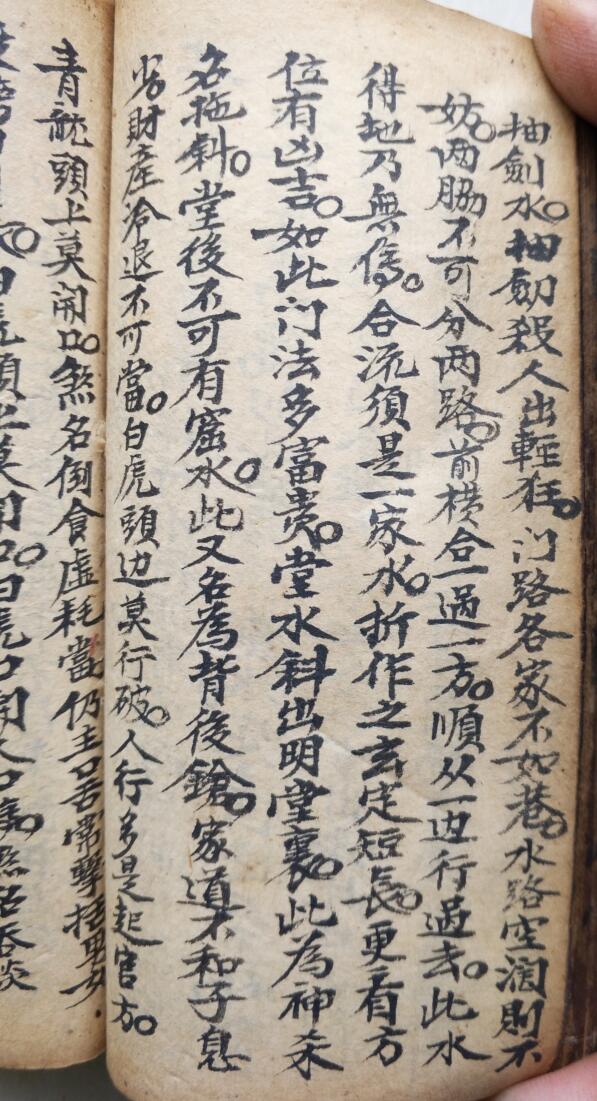 抽劍水。抽劒殺人出輕狂。门路各家不如巷。水路空濶則不
妨。两脇不可分两路。前横合一過一方。順从一边行過去。此水
得地乃無傷。合流須是一家水。折作之玄定短長。更看方
位有凶吉。如此门法多富贵。堂水斜出明堂裏。此為神杀
名拖斜。堂後不可有窟水。此又名為背後鎗。家道不和子息
劣財産冷退不可當。白虎頭边莫行破。人行多是起官方。
青龍頭上莫開口。煞名倒食虚耗當仍主口舌常擊括男女